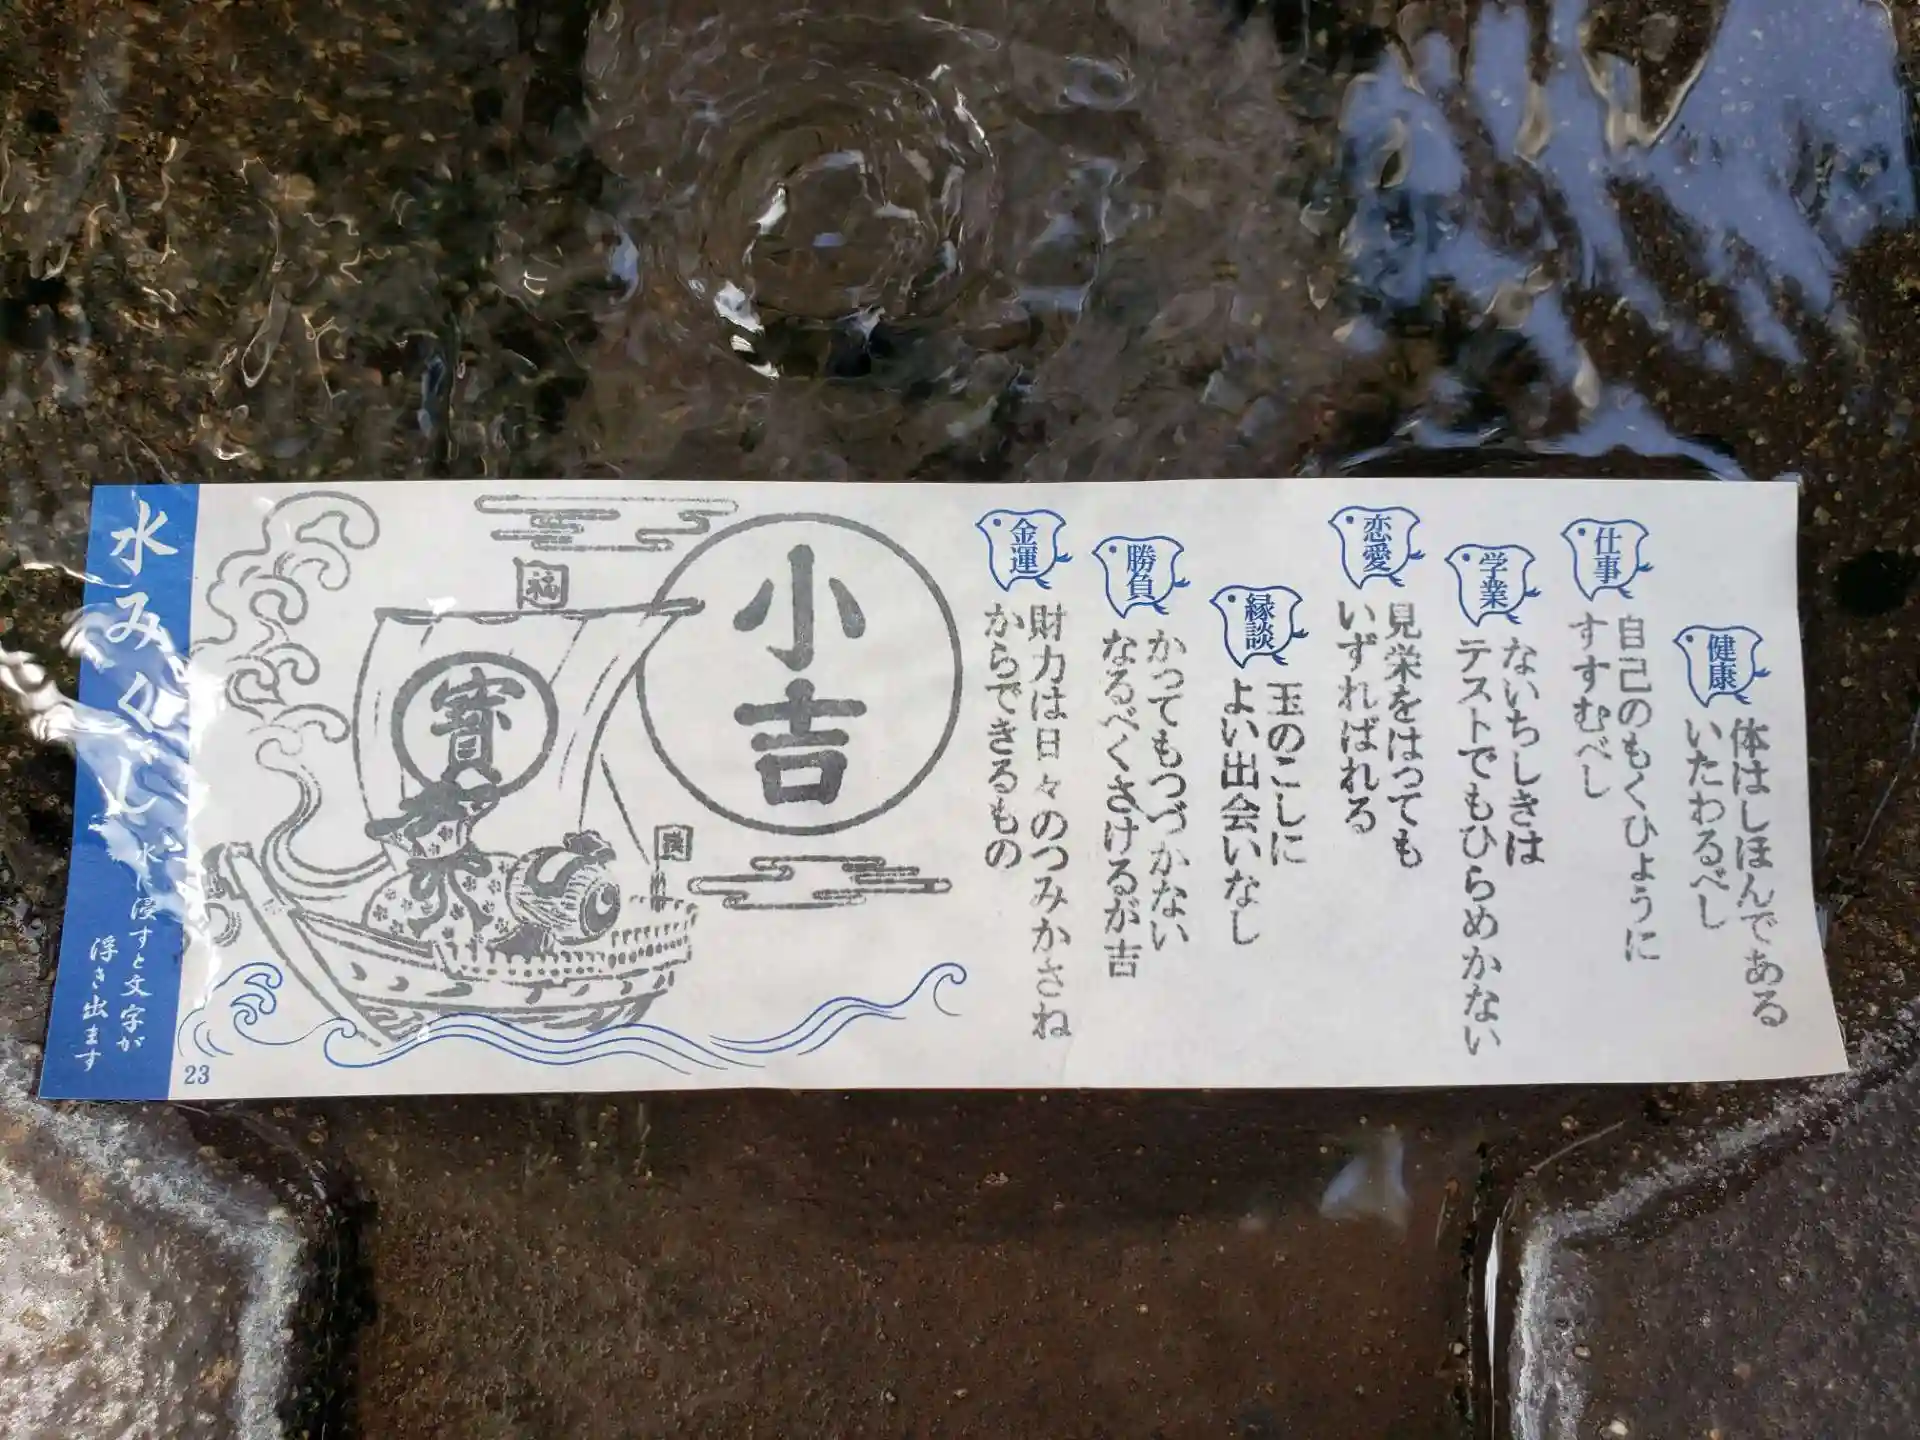 健康
体はしほんである
いたわるべし
仕事
自己のもくひょうに
すすむべし
学業
ないちしきは
テストでもひらめかない
恋愛
見栄をはっても
いずればれる
縁談
玉のこしに
よい出会いなし
勝負
かってもつづかない
なるべくさけるが吉
金運
財力は日々のつみかさね
からできるもの
小吉
福
寳
水みくじ
水に浸すと文字が
浮き出ます
23